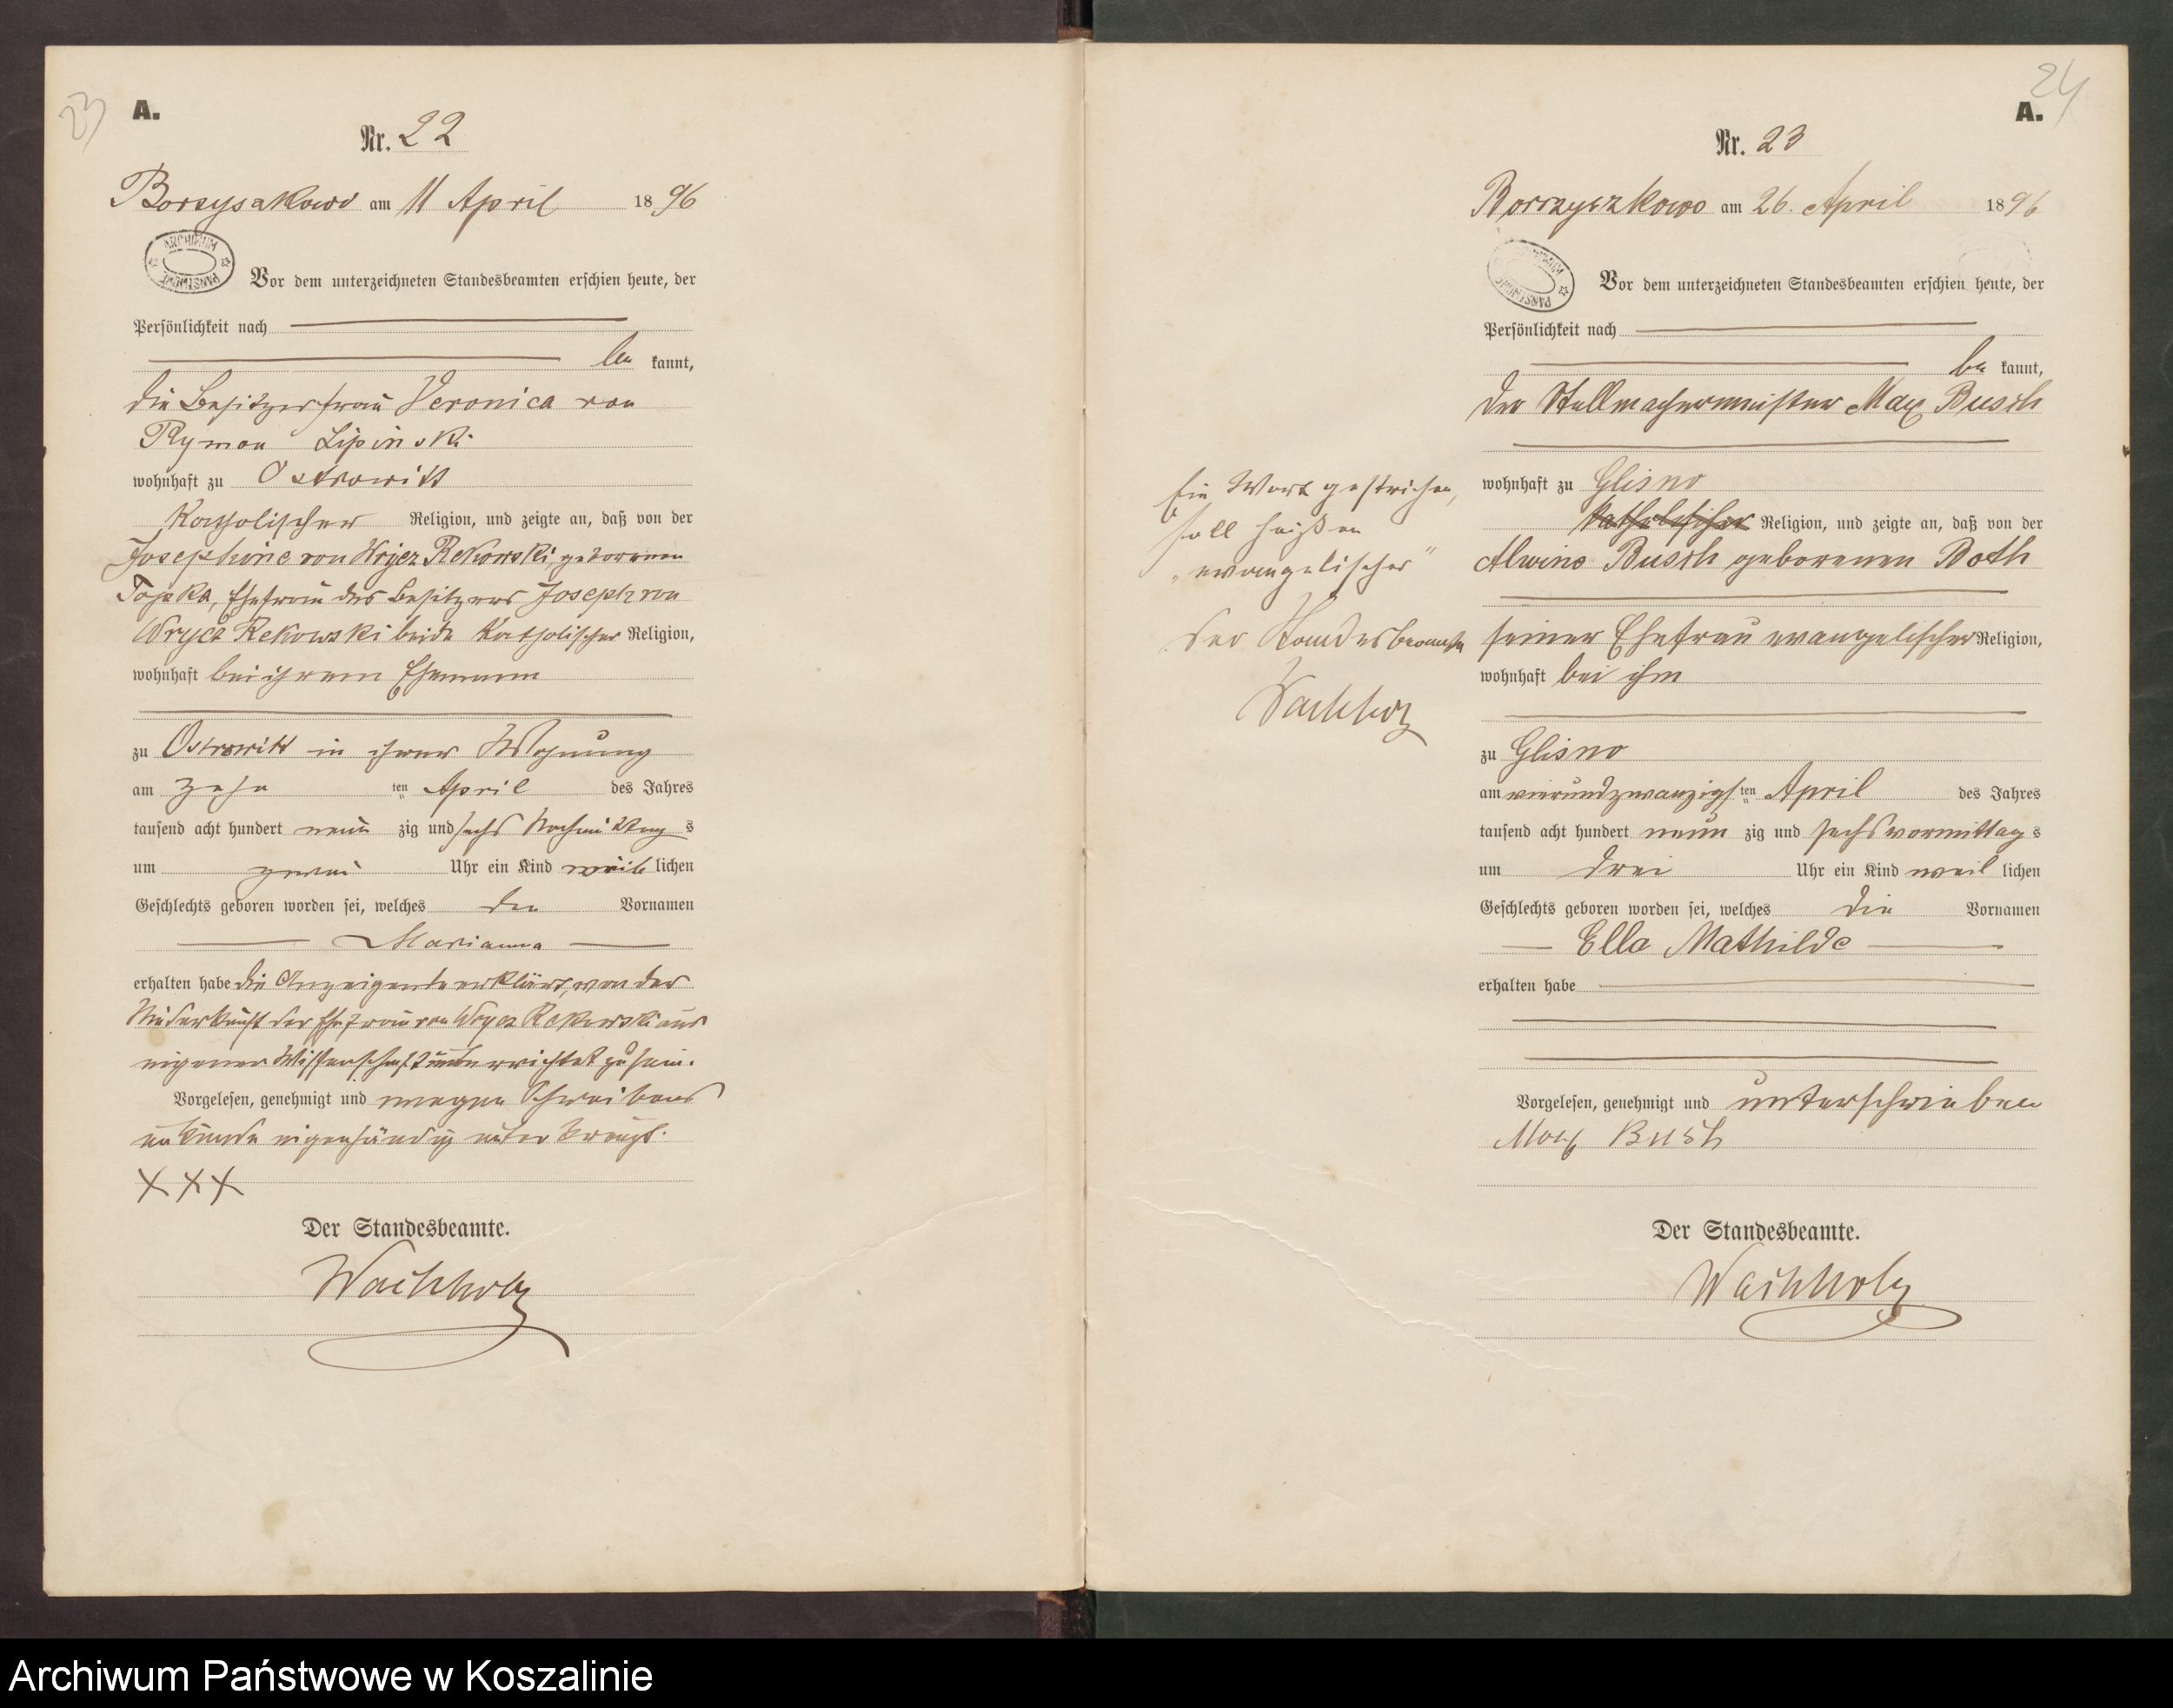 23
A.
Nr. 22
Borzyszkowo am 11 April 1896
ARCHIWUM PAŃSTWOWE
Vor dem unterzeichneten Standesbeamten erschien heute, der
Persönlichkeit nach
be kannt,
die Besitzerfrau Veronica von
Rymon Lipinski
wohnhaft zu Ostrowitt
katholischer Religion, und zeigte an, daß von der
Josephine von Wrycz Rekowski, geborenen
Ehefrau des Besitzers Joseph von
Wrycz Rekowski beide katholischer Religion,
wohnhaft bei ihrem Ehemann
zu Ostrowitt in ihrer Wohnung
am zehn ten April des Jahres
tausend acht hundert neun zig und sechs Nachmittag s
um zwei Uhr ein Kind weib lichen
Geschlechts geboren worden sei, welches den Vornamen
Marianna
erhalten habe die Anzeigende erklärt, von der
Niederkunft der Ehefrau von Wrycz Rekowski aus
eigener Wissenschaft unterrichtet zu sein.
Vorgelesen, genehmigt und wegen Schreibens
unkunde eigenhändig unterkreuzt.
XXX
Der Standesbeamte.
Wachholz
24
A.
Nr. 23
Borrzyszkowo am 26. April 1896
ARCHIWUM PAŃSTWOWE
Vor dem unterzeichneten Standesbeamten erschien heute, der
Persönlichkeit nach
be kannt,
der Stellmachermeister Max Busch
wohnhaft zu Glisno
katholischer Religion, und zeigte an, daß von der
Alwine Busch geborenen Both
seiner Ehefrau evangelischer Religion,
wohnhaft bei ihm
zu Glisno
am vierundzwanzigs ten April des Jahres
tausend acht hundert neun zig und sechs vormittag s
um drei Uhr ein Kind weib lichen
Geschlechts geboren worden sei, welches die Vornamen
Ella Mathilde
erhalten habe
Vorgelesen, genehmigt und unterschrieben
Max Busch
Der Standesbeamte.
Wachholz
Ein Wort gestrichen,
soll heißen
„evangelischer"
Der Standesbeamte
Wachholz
Archiwum Państwowe w Koszalinie